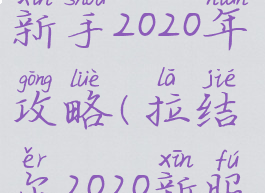 xīn shǒu nián
新手2020年
gōng lüè lā jié
攻略(拉结
ěr xīn fú
尔2020新服